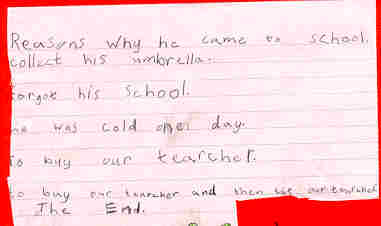 Reasons why he came to school.
collect his umbrella.
forgot his school.
he was cold one day.
To buy our tearcher.
to buy our tearcher and then use our
The End.